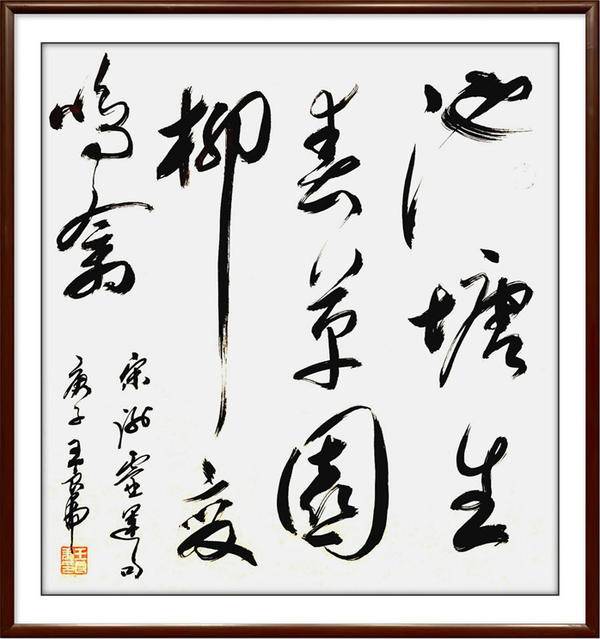 池塘生
春草園
柳变
鳴禽
宋謝靈運句
庚子王